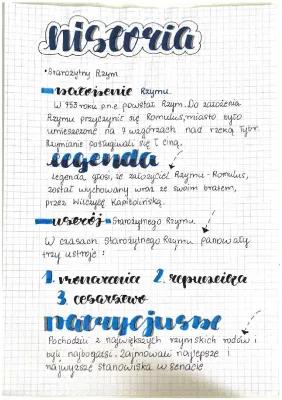 historia
• Starożytny Rzym
założenie Rzymu.
W 753 roku p.n.e powstał Rzym. Do założenia
Rzymu przyczynił się Romulus, miasto było
umieszczone na 7 wzgórzach nad rzeką Tybr.
Rzymianie posługiwali się ł. ciną.
legenda
Legenda głosi, że założyciel Rzymu - Romulus,
został wychowany wraz ze swoim bratem,
przez Wilczycę Kapitolińską.
ustrój - Starożytnego Rzymu
W czasach Starożytnego Rzymu panowały
trzy ustroje :
1. monarchia 2. republika
3. cesarstwo
patrycjusze
Pochodzili z największych rzymskich rodów i
byli najbogatsi. Zajmowali najlepsze i
najwyższe stanowiska w senacie